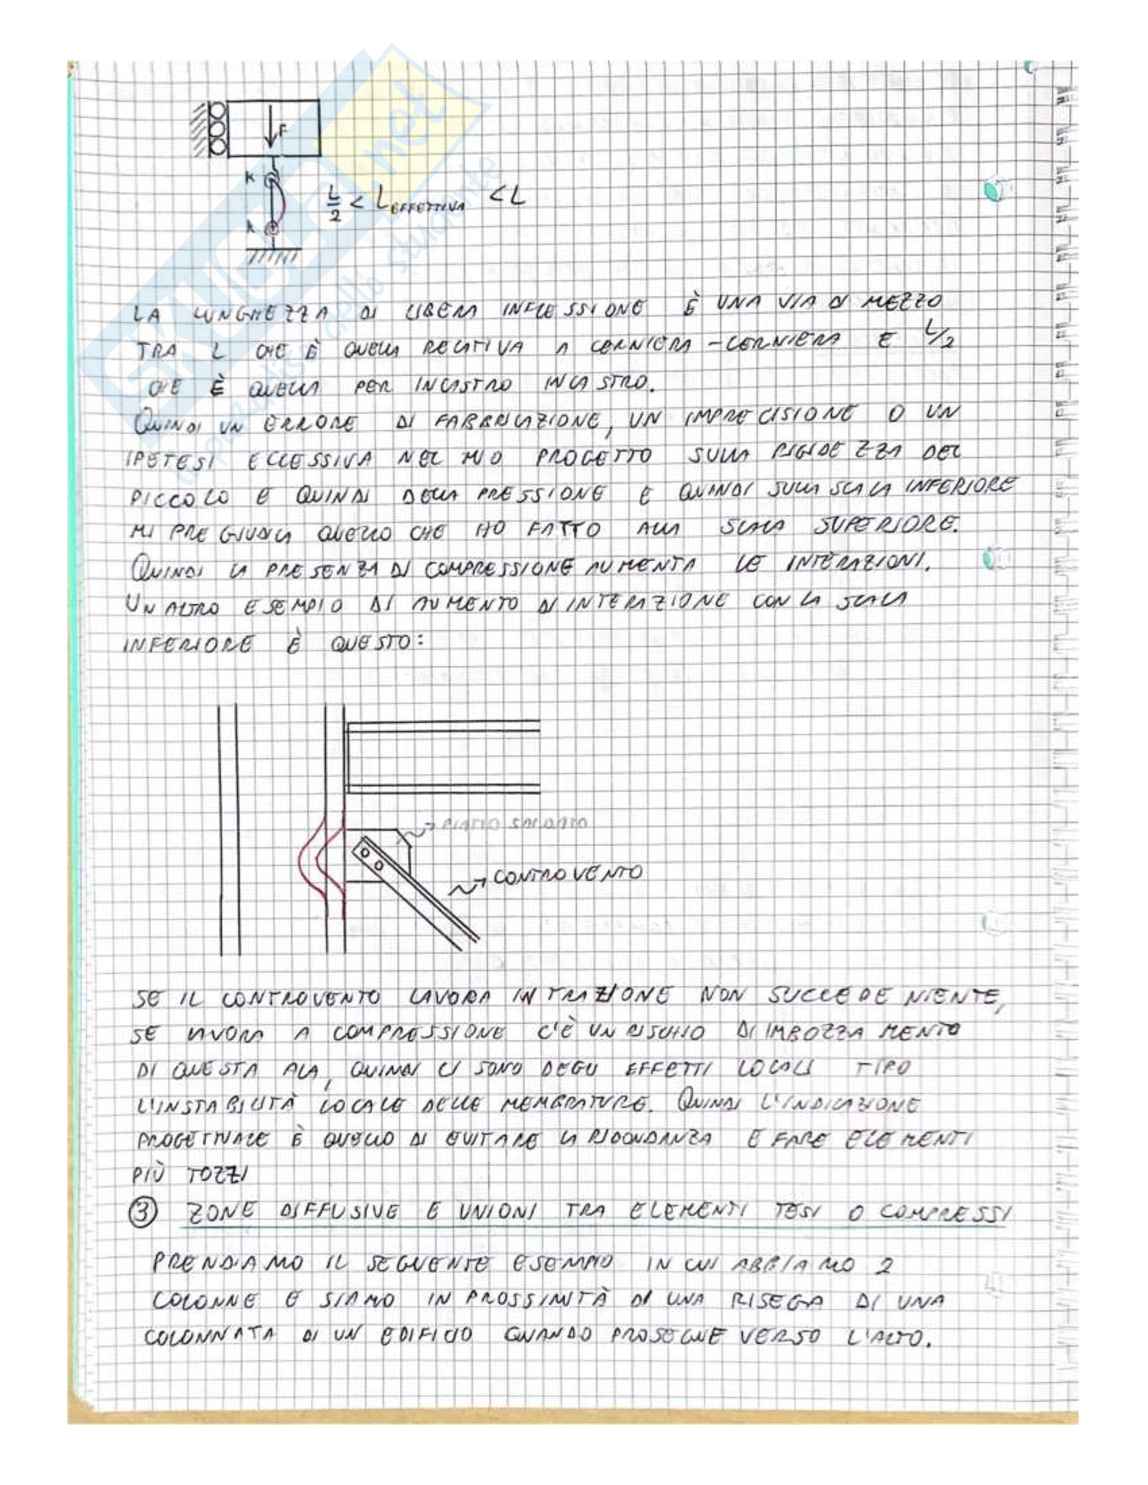 F
K
K
L/2 < L EFFETTIVA < L
LA LUNGHEZZA DI LIBERA INFLESSIONE È UNA VIA DI MEZZO
TRA L CHE È QUELLA RELATIVA A CERNIERA-CERNIERA E L/2
CHE È QUELLA PER INCASTRO INCASTRO.
QUINDI UN ERRORE DI FABBRICAZIONE, UN IMPRECISIONE O UN
IPOTESI ECCESSIVA NEL MIO PROGETTO SULLA RIGIDEZZA DEL
PICCOLO E QUINDI DELLA PRESSIONE E QUINDI SULLA SCALA INFERIORE
MI PREGIUDICA QUELLO CHE HO FATTO ALLA SCALA SUPERIORE.
QUINDI LA PRESENZA DI COMPRESSIONE AUMENTA LE INTERAZIONI.
UN ALTRO ESEMPIO DI AUMENTO DI INTERAZIONE CON LA SCALA
INFERIORE È QUESTO:
PIATTO SALDATO
CONTROVENTO
SE IL CONTROVENTO LAVORA IN TRAZIONE NON SUCCEDE NIENTE,
SE LAVORA A COMPRESSIONE C'È UN RISCHIO DI IMBOZZAMENTO
DI QUESTA ALA, QUINDI CI SONO DEGLI EFFETTI LOCALI TIPO
L'INSTABILITÀ LOCALE DELLE MEMBRATURE. QUINDI L'INDICAZIONE
PROGETTUALE È QUELLO DI EVITARE LA RIDONDANZA E FARE ELEMENTI
PIÙ TOZZI
③ ZONE DIFFUSIVE E UNIONI TRA ELEMENTI TESI O COMPRESSI
PRENDIAMO IL SEGUENTE ESEMPIO IN CUI ABBIAMO 2
COLONNE E SIAMO IN PROSSIMITÀ DI UNA RISEGA DI UNA
COLONNATA DI UN EDIFICIO QUANDO PROSEGUE VERSO L'ALTO.